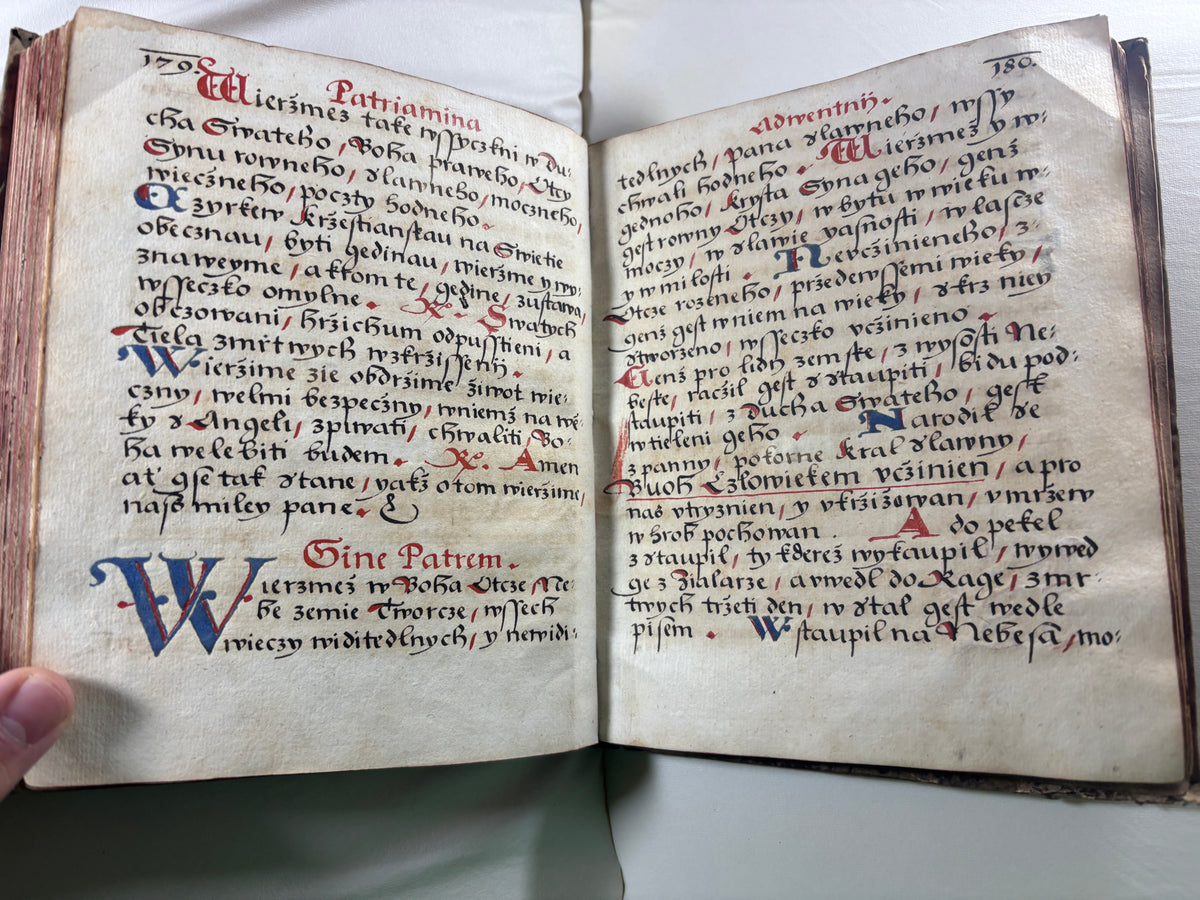 179.
Patriamina
Wieržmež take wssyczkni w Du-
cha Swateho / Boha praweho / Otcy
Synu rowneho / slawneho / moczneho /
wieczneho / poczty hodneho.
Czyrkew Kržestianskau na Swietie
obecznau / byti gedinau / wieržme y wy-
znaweyme / a ktom te / gedine / zustawa /
wsseczko omylne. R. Swatych
obczowani / hržichum odpusstieni / a
Tiela zmrtwych wzkržissenij.
Wieržime zie obdržime život wie-
czny / welmi bezpeczny / w niemž na wě-
ky s Angeli / zpiwati / chwaliti / Bo-
ha welebiti budem. R. Amen
at' gse tak stane / yakž o tom wieržime /
nass miley pane.
Gine Patrem.
Wierzmež w Boha Otcze Ne-
be zemie Tworcze / wssech
wieczy widitedlnych / y newidi-
180.
Adwentnij.
tedlnych / pana slawneho / wssy
chwali hodneho. Wieržmež y w-
gednoho / Krysta Syna geho / genž
gest rowny Otczy / w bytu w wieku w-
moczy / w slawie yasnosti / w lascze
y w milosti. Nevczinieneho / z-
Otcze rozeneho / přzedewssemi wieky /
genž gest w niem na wieky / skrz niey
stworzeno / wsseczko vczinieno.
Genž pro lidy zemske / z wysosti Ne-
beske / raczil gest sstaupiti / bidu pod-
staupiti / z Ducha Swateho / gest
w tieleni geho. Narodil se
z panny / pokorne Kral slawny /
Buoh Czlowiekem vczinien / a pro
nas vtryznien / y vkržižowan / vmržew
w hrob pochowan. A do pekel
zstaupil / ty kderež wykaupil / wywed
ge z Žialarze / a vwedl do Rage / zmr-
twych tržeti den / w stal gest wedle
pisem. Wstaupil na Nebesa / mo-